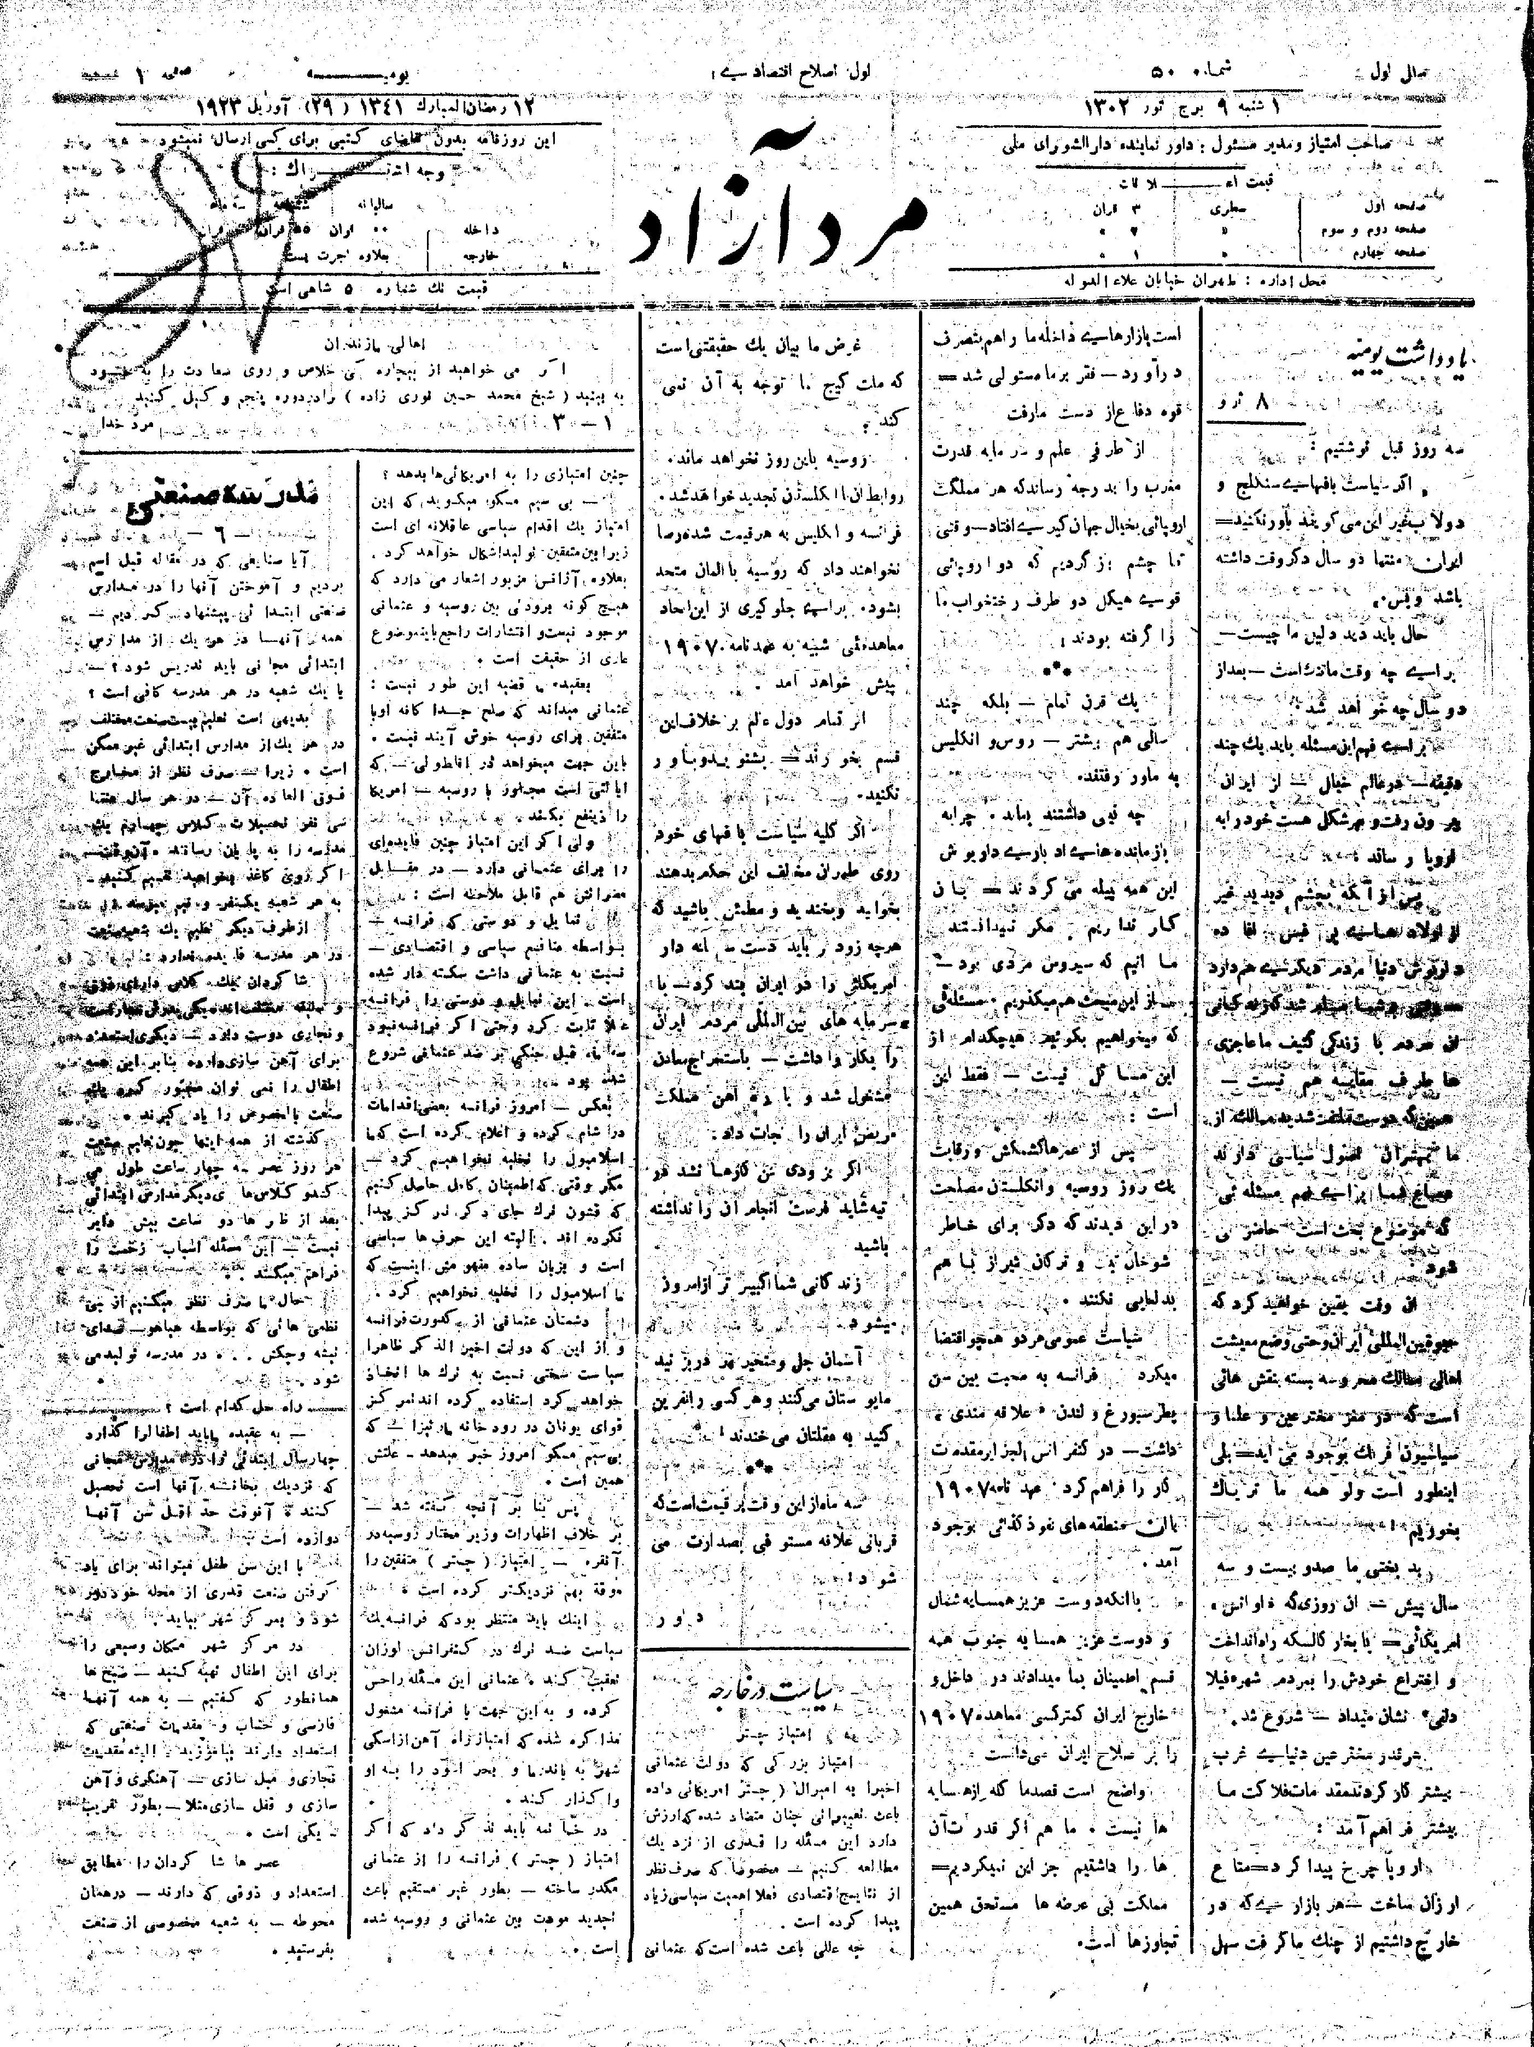 سال اول
شماره ۵۰
اول اصلاح اقتصادی
یومیه
صفحه ۱
۱ شنبه ۹ برج ثور ۱۳۰۲
۱۲ رمضان المبارك ۱۳٤۱ (۲۹) آوریل ۱۹۲۳
صاحب امتیاز و مدیر مسئول : داور نماینده دارالشورای ملی
قیمت اعلانات
صفحه اول سطری ۳ قران
صفحه دوم و سوم » ۲ »
صفحه چهارم » ۱ »
محل اداره : طهران خیابان علاء الدوله
مرد آزاد
این روزنامه بدون تقاضای کتبی برای کسی ارسال نمیشود
وجه اشتراك :
سالیانه
داخله
خارجه بعلاوه اجرت پست
قیمت تك شماره ۵ شاهی است
یادداشت یومیه
۸ ثور
سه روز قبل نوشتیم :
اگر سیاست بافهای سنگلج و
دولاب غیر این می گویند باور نکنید=
ایران منتها دو سال دگر وقت داشته
باشد وبس.
حال باید دید دلیل ما چیست —
برای چه وقت مانده است — بعد از
دو سال چه خواهد شد
برای فهم این مسئله باید یك چند
دقیقه — در عالم خیال — از ایران
بیرون رفت و بهر شکل هست خود را به
اروپا رساند :
پس از آنکه بچشم دیدید غیر
دنیا مردم دیگری هم دارد
این مردم با زندگی کثیف ما عاجزی
ها طرف مقایسه هم نیست —
که موضوع بحث است حاضر می
شود
آن وقت یقین خواهید کرد که
بین المللی ایران وحتی وضع معیشت
اهالی ممالك محروسه بسته بنقش هائی
است که در مغز مخترعین و علما و
سیاسیون فرنك بوجود می آید= بلی
اینطور است ولو همه ما تریاك
بخوریم !
بد بختی ما صدو بیست و سه
سال پیش — آن روزی که
امریکائی = با بخار کالسکه راه انداخت
و اختراع خودش را بمردم شهر فیلا
دلفی نشان میداد — شروع شد.
هرقدر مخترعین دنیای غرب
بیشتر کار کردند مقدمات فلاکت ما
بیشتر فراهم آمد :
اروپا چرخ پیدا کرد = متاع
ارزان ساخت = هر بازاری که در
خارج داشتیم از چنك ما گرفت سهل
است بازارهای داخله ما را هم بتصرف
درآورد — فقر بر ما مستولی شد =
قوه دفاع از دست ما رفت
از طرفی علم و سرمایه قدرت
مغرب را بدرجه رساند که هر مملکت
اروپائی بخیال جهان گیری افتاد — وقتی
ما چشم باز کردیم که دو اروپائی
قوی هیکل دو طرف رختخواب ما
را گرفته بودند :
***
یك قرن تمام — بلکه چند
سالی هم بیشتر — روس و انگلیس
به ماور رفتند.
چه نیتی داشتند بماند. چرا به
این همه پیله می کردند = بآن
کار نداریم . مگر نمیدانستند
ما آنیم که سیروس مردی بود —
از این مبحث هم میگذریم . مسئله ئی
که میخواهیم بگوئیم هیچکدام از
این مسائل نیست — فقط این
است :
پس از عمرها کشمکش و رقابت
یك روز روسیه و انگلستان مصلحت
در این دیدند که دگر برای خاطر
شوخان تبت و ترکان شیراز با هم
بدلعابی نکنند .
سیاست عمومی هر دو همچو اقتضا
میکرد فرانسه به محبت بین سن
پطرسبورغ و لندن علاقه مندی
داشت — در کنفرانس الجزایر مقدمات
کار را فراهم کرد عهد نامه ۱۹۰۷
با آن منطقه های نفوذ کذائی بوجود
آمد .
با آنکه دوست عزیز همسایه شمال
و دوست عزیز همسایه جنوب همه
قسم اطمینان بما میدادند در داخل و
خارج ایران کمتر کسی معاهده ۱۹۰۷
را بر صلاح ایران می دانست
واضح است قصد ما گله از همسایه
ها نیست . ما هم اگر قدرت آن
ها را داشتیم جز این نمیکردیم =
مملکت بی عرضه ها مستحق همین
تجاوزها است.
غرض ما بیان یك حقیقتی است
که مات گیج ما توجه به آن نمی
کند :
روسیه باین روز نخواهد ماند.
روابطش با انگلستان تجدید خواهد شد.
فرانسه و انگلیس به هر قیمت شده رضا
نخواهند داد که روسیه با آلمان متحد
بشود. برای جلوگیری از این اتحاد
معاهده ئی شبیه به عهدنامه ۱۹۰۷
پیش خواهد آمد .
اگر تمام دول عالم بر خلاف این
قسم بخورند = بشنوید و باور
نکنید.
اگر کلیه سیاست بافهای خود
روی طهران مخالف این حکم بدهند
بخواید و بخندید و مطمئن باشید که
هرچه زودتر باید دست سرمایه دار
امریکائی را در ایران بند کرد — با
سرمایه های بین المللی مردم ایران
را بکار وا داشت — باستخراج معادن
مشغول شد و با راه آهن مملکت
مریض ایران را نجات داد :
اگر بزودی این کارها نشد دو
تیه شاید فرصت انجام آن را نداشته
باشید
زندگانی شما اکبیر تر از امروز
میشود
کنید به عقلتان می خندند !
***
سه ماه از این وقت پر قیمت است که
قربانی علاقه مستوفی بصدارت می
شود !
داور
سیاست در خارجه
امتیاز چستر
امتیاز بزرگی که دولت عثمانی
اخیرا به امیرال (چستر امریکائی داده
باعث تعبیراتی چنان متضاد شده که ارزش
دارد این مسئله را قدری از نزدیك
مطالعه کنیم — مخصوصا که صرف نظر
از نتایج اقتصادی فعلا اهمیت سیاسی زیاد
پیدا کرده است .
چه عللی باعث شده است که عثمانی
اهالی مازندران
اگر می خواهید از بیچارگی خلاص و روی سعادت را به خود
به بینید ( شیخ محمد حسین نوری زاده ) را در دوره پنجم وکیل کنید
۱ — ۳ مرد خدا
چنین امتیازی را به امریکائی ها بدهد ؟
— بی سیم مسکو میگوید که این
امتیاز یك اقدام سیاسی عاقلانه ای است
زیرا بین متفقین تولید اشکال خواهد کرد .
بعلاوه آژانس مزبور اشعار می دارد که
هیچ گونه برودتی بین روسیه و عثمانی
موجود نیست و انتشارات راجع باینموضوع
عاری از حقیقت است .
بعقیده ما قضیه این طور نیست :
عثمانی میداند که صلح جداگانه او با
متفقین برای روسیه خوش آیند نیست .
باین جهت میخواهد در اناطولی — که
ایالتی است مجاور با روسیه — امریکا
را ذینفع بکند
ولی اگر این امتیاز چنین فایده ای
را برای عثمانی دارد — در مقابل
مضراتش هم قابل ملاحظه است :
تمایل و دوستی که فرانسه —
بواسطه منافع سیاسی و اقتصادی —
نسبت به عثمانی داشت سکته دار شده
است . این تمایل و دوستی را فرانسه
عملا ثابت کرد وحتی اگر فرانسه نبود
قبل جنگی بر ضد عثمانی شروع
شده بود
بعکس — امروز فرانسه بعضی اقدامات
در شام کرده و اعلام کرده است که ما
اسلامبول را تخلیه نخواهیم کرد —
مگر وقتی که اطمینان کامل حاصل کنیم
که قشون ترك جای دگر تمرکز پیدا
نکرده اند . البته این حرف ها سیاسی
است و بزبان ساده مفهومش اینست که
ما اسلامبول را تخلیه نخواهیم کرد .
دشمنان عثمانی از کدورت فرانسه
و از این که دولت اخیر الذکر ظاهرا
سیاست سختی نسبت به ترك ها اتخاذ
خواهد کرد استفاده کرده اند تمرکز
قوای یونان در رودخانه ماریتزا — که
بی سیم مسکو امروز خبر میدهد — علتش
همین است .
پس بنا بر آنچه گفته شد —
بر خلاف اظهارات وزیر مختار روسیه در
آنقره — امتیاز ( چستر ) متفقین را
موقة بهم نزدیکتر کرده است .
اینك باید منتظر بود که فرانسه یك
سیاست ضد ترك در کنفرانس لوزان
تعقیب کند . عثمانی این مسئله را حس
کرده و به این جهت با فرانسه مشغول
مذاکره شده که امتیاز راه آهن از اسکی
شهر به پاندرما و بحر اسود را به او
واگذار کند .
در خاتمه باید تذکر داد که اگر
امتیاز ( چستر ) فرانسه را از عثمانی
مکدر ساخته — بطور غیر مستقیم باعث
تجدید مودت بین عثمانی و روسیه شده
است .
مدرسه صنعتی
— ٦ —
آیا صنایعی که در مقاله قبل اسم
بردیم و آموختن آنها را در مدارس
صنعتی ابتدائی پیشنهاد کردیم —
همه آنها در هر یك از مدارس
ابتدائی مجانی باید تدریس شود ؟ —
یا یك شعبه در هر مدرسه کافی است ؟
بدیهی است تعلیم بیست صنعت مختلف
در هر یك از مدارس ابتدائی غیر ممکن
است . زیرا — صرف نظر از مخارج
فوق العاده آن — در هر سال منتها
سی نفر تحصیلات کلاس چهارم یك
مدرسه را به پایان رساند . آن وقت
اگر روی کاغذ بخواهید تقسیم کنید —
از طرف دیگر تعلیم یك شعبه صنعت
در هر مدرسه فایده ندارد :
شاگردان یك کلاس دارای ذوق
و نجاری دوست دارد — دیگری استعداد
برای آهن سازی دارد بنابر این همه
اطفال را نمی توان مجبور کرد یك
صنعت بالخصوص را یاد گیرند .
گذشته از همه اینها چون تعلیم صنعت
هر روز عصر سه چهار ساعت طول می
کشد و کلاس های دیگر مدارس ابتدائی
بعد از ظهرها دو ساعت بیش دایر
نیست — این مسئله اسباب زحمت را
فراهم میکند .
حال ما صرف نظر میکنیم از بی
نظمی هائی که بواسطه هیاهو — صدای
تیشه و چکش ... در مدرسه تولید می
شود .
— راه حل کدام است ؟
— به عقیده ما باید اطفال را گذارد
چهار سال ابتدائی را در مدارس مجانی
که نزدیك بخانه آنها است تحصیل
کنند . آنوقت حد اقل سن آنها
دوازده است
با این سن طفل میتواند برای یاد
گرفتن صنعت قدری از محله خود دور
شود و بمرکز شهر بیاید .
در مرکز شهر مکان وسیعی را
برای این اطفال تهیه کنید — صبح ها
همانطور که گفتیم — به همه آنها
فارسی و حساب و مقدمات صنعتی که
استعداد دارند بیاموزید . البته مقدمات
نجاری و مبل سازی — آهنگری و آهن
سازی و قفل سازی مثلا — بطور تقریب
یکی است .
عصر ها شاگردان را مطابق
استعداد و ذوقی که دارند — در همان
محوطه — به شعبه مخصوصی از صنعت
بفرستید .